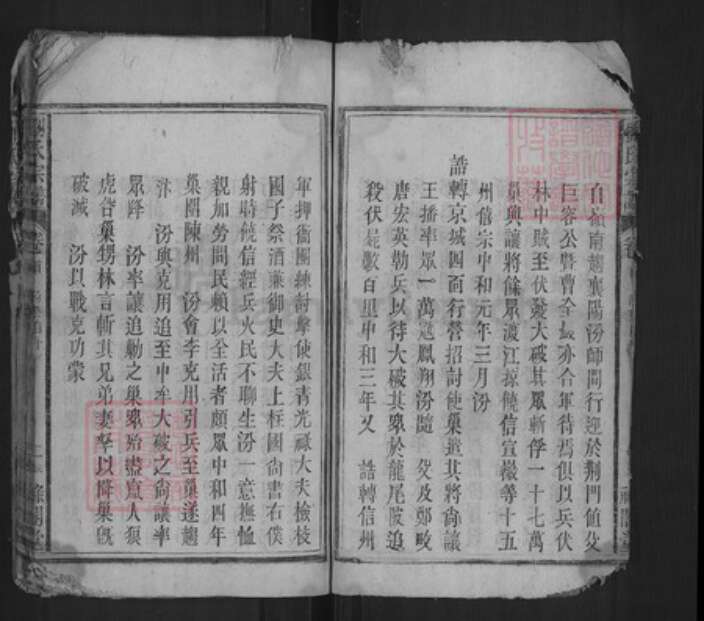 自嶺南趨襄陽汾師間行迎於荆門值父
巨容公暨曹全晸亦合軍待焉俱以兵伏
林中賊至伏發大破其眾斬俘一十七萬
巢與讓將餘眾渡江掠饒信宣徽等十五
州僖宗中和元年三月汾
誥轉京城四面行營招討使巢遣其將尚讓
王播率眾一萬寇鳳翔汾隨 父及鄭畋
唐宏英勒兵以待大破其眾於龍尾陂追
殺伏屍數百里中和三年又 誥轉信州
軍押衙團練討擊使銀青光祿大夫檢校
國子祭酒兼御史大夫上柱國尚書右僕
射時饒信經兵火民不聊生汾一意撫恤
親加勞問民賴以全活者頗眾中和四年
巢圍陳州 汾會李克用引兵至巢遂趨
汴 汾與克用追至中牟大破之尚讓率
眾降 汾率讓追勦之巢眾殆盡竄入狼
虎谷巢甥林言斬其兄弟妻孥以降巢旣
破滅 汾以戰克功蒙